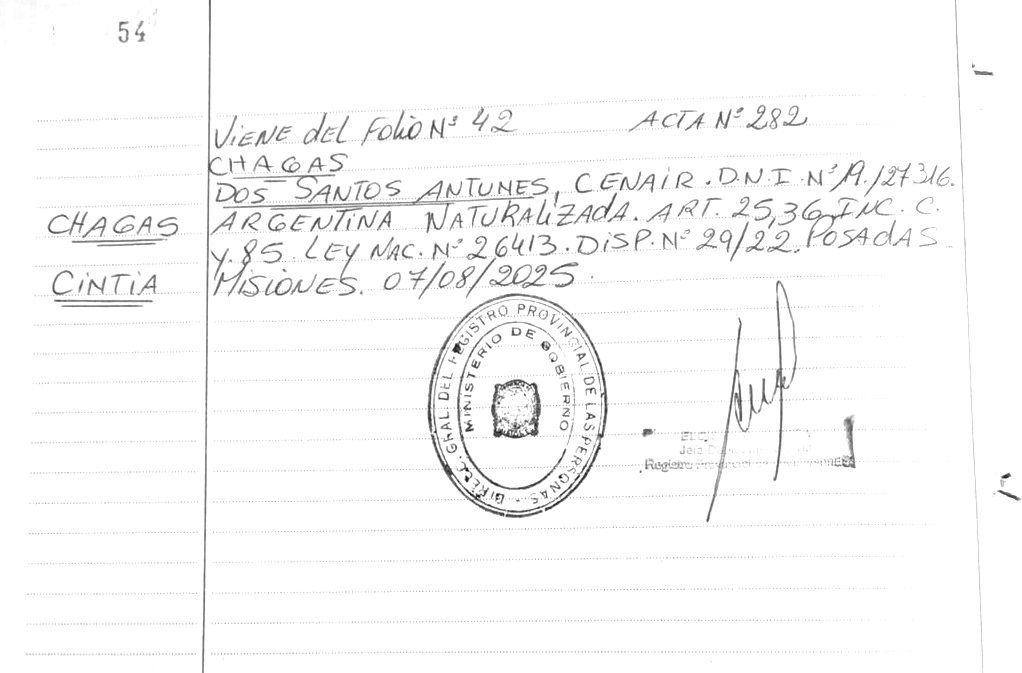 54
Viene del Folio N° 42 ACTA N° 282
CHAGAS
DOS SANTOS ANTUNES, CENAIR. D.N.I. N° 19./27316.
CHAGAS ARGENTINA NATURALIZADA. ART. 25,36, INC. C.
y. 85. LEY NAC. N° 26413. DISP. N° 29/22. POSADAS
CINTIA MISIONES. 07/08/2025.
DIREC. GRAL. DEL REGISTRO PROVINCIAL DE LAS PERSONAS -
MINISTERIO DE GOBIERNO
Registro